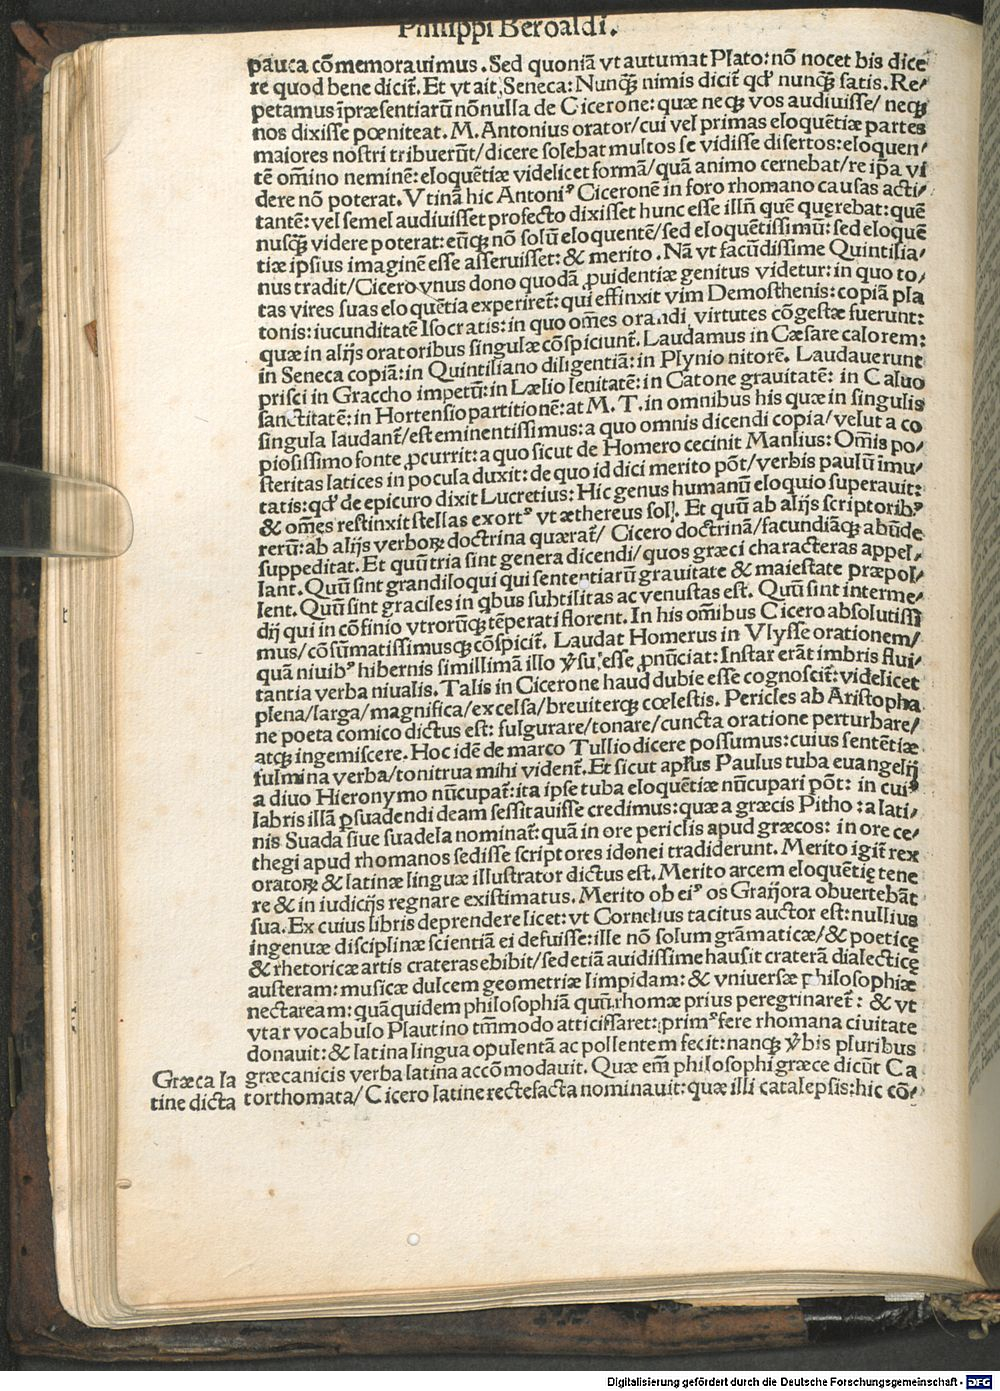 Philippi Beroaldi.
pauca cōmemorauimus. Sed quoniā vt autumat Plato: nō nocet bis dice
re quod bene dicit̄. Et vt ait Seneca: Nunqꝫ nimis dicit̄ qd' nunqꝫ satis. Re⸗
petamus īpræsentiarū nōnulla de Cicerone: quæ neqꝫ vos audiuisse/ neqꝫ
nos dixisse pœniteat. M. Antonius orator/cui vel primas eloquētiæ partes
maiores nostri tribuerūt/dicere solebat multos se vidisse disertos: eloquen⸗
tē om̄ino neminē: eloquētiæ videlicet formā/quā animo cernebat/re ip̄a vi
dere nō poterat. Vtinā hic Antoniꝰ Ciceronē in foro rhomano causas acti⸗
tantē: vel semel audiuisset profecto dixisset hunc esse illū quē quęrebat: quē
nusqꝫ videre poterat: eūqꝫ nō solū eloquentē/sed eloquētissimū: sed eloquē
tiæ ipsius imaginē esse asseruisset: & merito. Nā vt facūdissime Quintilia⸗
nus tradit/Cicero vnus dono quodā ꝓuidentiæ genitus videtur: in quo to⸗
tas vires suas eloquētia experiret̄: qui effinxit vim Demosthenis: copiā pla
tonis: iucunditatē Isocratis: in quo om̄es orandi virtutes cōgestæ fuerunt:
quæ in alijs oratoribus singulæ cōspiciunt̄. Laudamus in Cæsare calorem:
in Seneca copiā: in Quintiliano diligentiā: in Plynio nitorē. Laudauerunt
prisci in Graccho impetū: in Lælio lenitatē: in Catone grauitatē: in Caluo
sanctitatē: in Hortensio partitionē: at M. T. in omnibus his quæ in singulis
singula laudant̄/est eminentissimus: a quo omnis dicendi copia/velut a co
piosissimo fonte ꝓcurrit: a quo sicut de Homero cecinit Manlius: Om̄is po⸗
steritas latices in pocula duxit: de quo id dici merito pōt/verbis paulū īmu⸗
tatis: qd' de epicuro dixit Lucretius: Hic genus humanū eloquio superauit:
& om̄es restinxit stellas exortꝰ vt æthereus sol. Et quū ab alijs scriptoribꝰ
rerū: ab alijs verboꝝ doctrina quærat̄/ Cicero doctrinā/facundiāqꝫ abūde
suppeditat. Et quū tria sint genera dicendi/quos græci characteras appel⸗
lant. Quū sint grandiloqui qui sententiarū grauitate & maiestate præpol⸗
lent. Quū sint graciles in qbus subtilitas ac venustas est. Quū sint interme⸗
dij qui in cōfinio vtrorūqꝫ tēperati florent. In his om̄ibus Cicero absolutissi
mus/cōsūmatissimusqꝫ cōspicit̄. Laudat Homerus in Vlysse orationem/
quā niuibꝰ hibernis simillimā illo v̓su esse ꝓnūciat: Instar erāt imbris flui⸗
tantia verba niualis. Talis in Cicerone haud dubie esse cognoscit̄: videlicet
plena/larga/magnifica/excelsa/breuiterqꝫ cœlestis. Pericles ab Aristopha
ne poeta comico dictus est: fulgurare/tonare/cuncta oratione perturbare/
atqꝫ ingemiscere. Hoc idē de marco Tullio dicere possumus: cuius sentētiæ
fulmina verba/tonitrua mihi vident̄. Et sicut apl̄us Paulus tuba euangelij
a diuo Hieronymo nūcupat̄: ita ipse tuba eloquētiæ nūcupari pōt: in cuiꝰ
labris illā ꝑsuadendi deam sessitauisse credimus: quæ a græcis Pitho: a lati⸗
nis Suada siue suadela nominat̄: quā in ore periclis apud græcos: in ore ce⸗
thegi apud rhomanos sedisse scriptores idonei tradiderunt. Merito igit̄ rex
oratoꝝ & latinæ linguæ illustrator dictus est. Merito arcem eloquētię tene
re & in iudicijs regnare existimatus. Merito ob eiꝰ os Graijora obuertebāt
sua. Ex cuius libris deprendere licet: vt Cornelius tacitus auctor est: nullius
ingenuæ disciplinæ scientiā ei defuisse: ille nō solum grāmaticæ/& poeticę
& rhetoricæ artis crateras ebibit/sed etiā auidissime hausit craterā dialecticę
austeram: musicæ dulcem geometriæ limpidam: & vniuersæ philosophiæ
nectaream: quā quidem philosophiā quū rhomæ prius peregrinaret̄: & vt
vtar vocabulo Plautino tm̄modo atticissaret: primꝰ fere rhomana ciuitate
donauit: & latina lingua opulentā ac pollentem fecit: nanqꝫ v̓bis pluribus
græcanicis verba latina accōmodauit. Quæ em̄ philosophi græce dicūt Ca
torthomata/Cicero latine recte facta nominauit: quæ illi catalepsis: hic cō⸗
Græca la
tine dicta
Digitalisierung gefördert durch die Deutsche Forschungsgemeinschaft - DFG